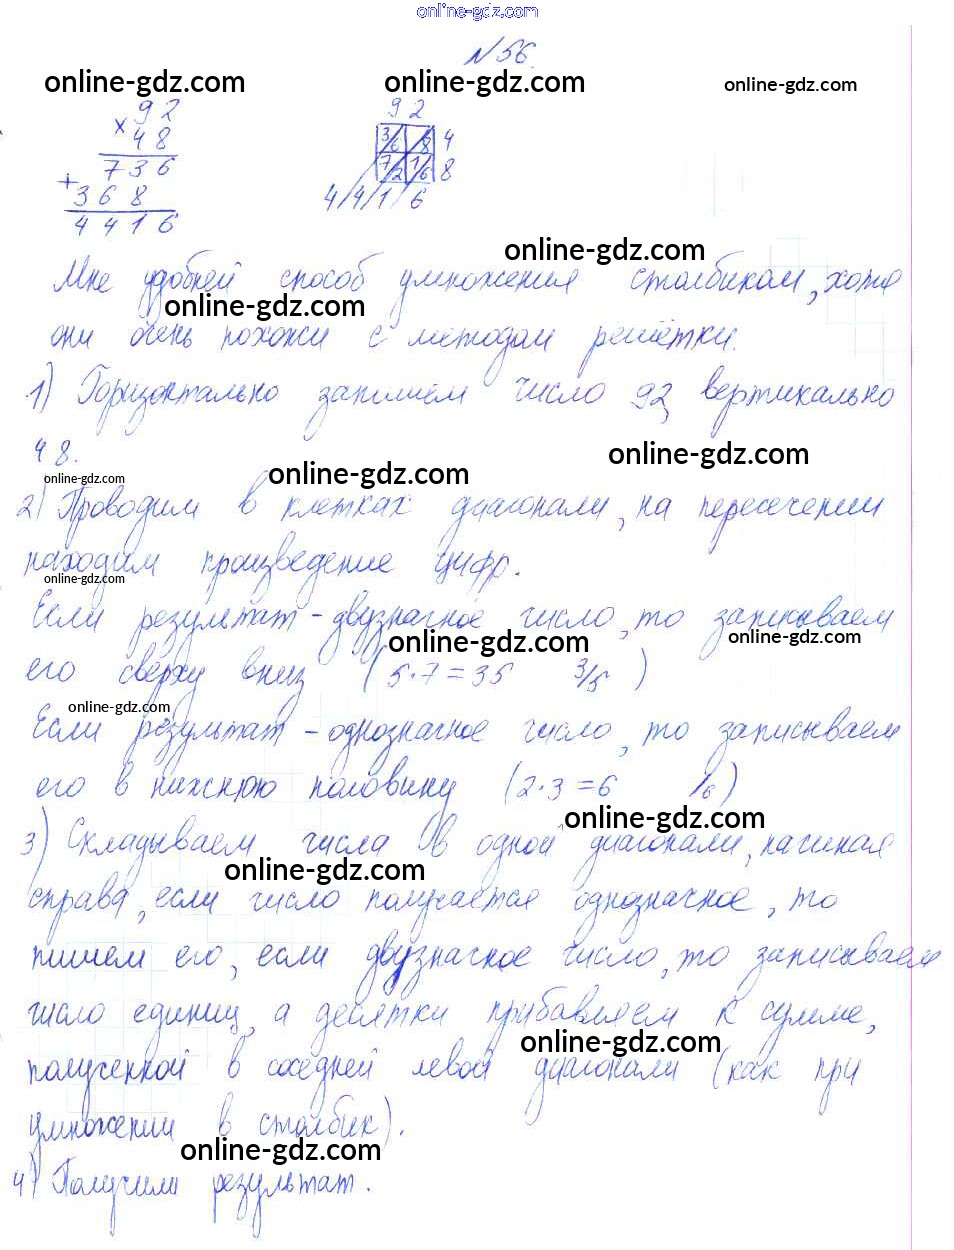 online-gdz.com
№ 56.
online-gdz.com online-gdz.com online-gdz.com
× 92
48
736
+ 368
4416
92
3/6 /8 4
7/2 1/6 8
4/4/1/6
online-gdz.com
Мне удобней способ умножения столбиком, хотя
online-gdz.com
они очень похожи с методом решётки.
1) Горизонтально запишем число 92, вертикально
48.
online-gdz.com
online-gdz.com
online-gdz.com
2) Проводим в клетках диагонали, на пересечении
находим произведение цифр.
online-gdz.com
Если результат - двузначное число, то записываем
online-gdz.com online-gdz.com
его сверху вниз (5·7=35 3/5)
online-gdz.com
Если результат - однозначное число, то записываем
его в нижнюю половину (2·3=6 /6)
online-gdz.com
3) Складываем числа в одной диагонали, начиная
online-gdz.com
справа, если число получается однозначное, то
пишем его, если двузначное число, то записываем
число единиц, а десятки прибавляем к сумме,
online-gdz.com
полученной в соседней левой диагонали (как при
умножении в столбик).
online-gdz.com
4) Получили результат.